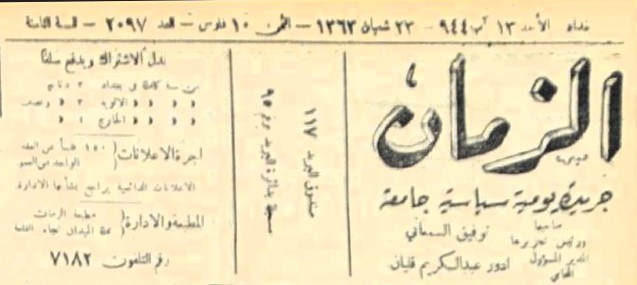 بغداد الأحد ١٣ آب ٩٤٤ – ٢٣ شعبان ١٣٦٣ – الثمن ١٠ فلوس – العدد ٢٠٩٧ – السنة الثامنة
الزمان
جريدة يومية سياسية جامعة
صاحبها
ورئيس تحريرها
توفيق السمعاني
المدير المسؤول
المحامي
ادور عبدالكريم قليان
صندوق البريد ١١٧
مسجلة بدائرة البريد برقم ٩٥
بدل الاشتراك ويدفع سلفاً
عن سنة كاملة في بغداد ٢
« « « الالوية ٢
« « « الخارج
اجرة الاعلانات ( ١٥٠ فلساً عن العقد
الواحد من
الاعلانات الدائمية يراجع بشأنها الادارة
المطبعة والادارة ( مطبعة الزمان
الميدان تجاه القلعة
رقم التلفون ٧١٨٢